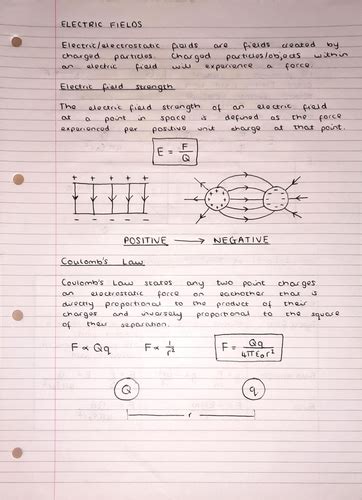 ELECTRIC FIELDS
Electric/electrostatic fields are fields created by
charged particles. Charged particles/objects within
an electric field will experience a force.
Electric field strength
The electric field strength of an electric field
at a point in space is defined as the force
experienced per positive unit charge at that point.
E = F/Q
+ + + + + +
- - - - - -
POSITIVE → NEGATIVE
Coulomb's Law
Coulomb's Law states any two point charges
an electrostatic force on eachother that is
directly proportional to the product of their
charges and inversely proportional to the square
of their separation.
F ∝ Qq F ∝ 1/r² F = Qq/4πε₀r²
Q q
r